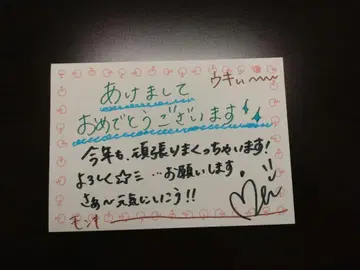 ウキぃ〜〜
あけまして
おめでとうございます!
今年も、頑張りまくっちゃいます!
よろしく☆ミ …お願いします。
さぁ〜元気にいこう!!